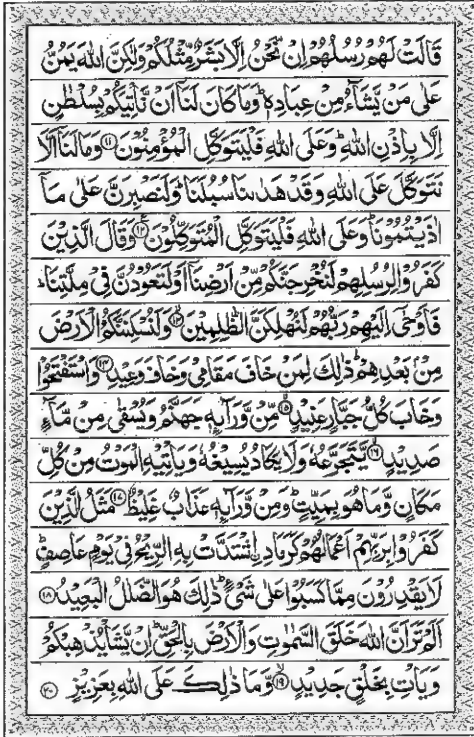 قَالَتْ لَهُمْ رُسُلُهُمْ اِنْ نَّحْنُ اِلَّا بَشَرٌ مِّثْلُكُمْ وَلٰكِنَّ اللّٰهَ يَمُنُّ
عَلٰى مَنْ يَّشَآءُ مِنْ عِبَادِهٖ ؕ وَمَا كَانَ لَنَاۤ اَنْ نَّاْتِيَكُمْ بِسُلْطٰنٍ
اِلَّا بِاِذْنِ اللّٰهِ ؕ وَعَلَى اللّٰهِ فَلْيَتَوَكَّلِ الْمُؤْمِنُوْنَ ۱۱ وَمَا لَنَاۤ اَلَّا
نَتَوَكَّلَ عَلَى اللّٰهِ وَقَدْ هَدٰىنَا سُبُلَنَا ؕ وَلَنَصْبِرَنَّ عَلٰى مَاۤ
اٰذَيْتُمُوْنَا ؕ وَعَلَى اللّٰهِ فَلْيَتَوَكَّلِ الْمُتَوَكِّلُوْنَ ۱۲ وَقَالَ الَّذِيْنَ
كَفَرُوْا لِرُسُلِهِمْ لَنُخْرِجَنَّكُمْ مِّنْ اَرْضِنَاۤ اَوْ لَتَعُوْدُنَّ فِيْ مِلَّتِنَا ؕ
فَاَوْحٰۤى اِلَيْهِمْ رَبُّهُمْ لَنُهْلِكَنَّ الظّٰلِمِيْنَ ۱۳ وَلَنُسْكِنَنَّكُمُ الْاَرْضَ
مِنْ بَعْدِهِمْ ؕ ذٰلِكَ لِمَنْ خَافَ مَقَامِيْ وَخَافَ وَعِيْدِ ۱۴ وَاسْتَفْتَحُوْا
وَخَابَ كُلُّ جَبَّارٍ عَنِيْدٍ ۱۵ مِّنْ وَّرَآئِهٖ جَهَنَّمُ وَيُسْقٰى مِنْ مَّآءٍ
صَدِيْدٍ ۱۶ يَّتَجَرَّعُهٗ وَلَا يَكَادُ يُسِيْغُهٗ وَيَاْتِيْهِ الْمَوْتُ مِنْ كُلِّ
مَكَانٍ وَّمَا هُوَ بِمَيِّتٍ ؕ وَمِنْ وَّرَآئِهٖ عَذَابٌ غَلِيْظٌ ۱۷ مَثَلُ الَّذِيْنَ
كَفَرُوْا بِرَبِّهِمْ اَعْمَالُهُمْ كَرَمَادِ ِۨاشْتَدَّتْ بِهِ الرِّيْحُ فِيْ يَوْمٍ عَاصِفٍ ؕ
لَا يَقْدِرُوْنَ مِمَّا كَسَبُوْا عَلٰى شَيْءٍ ؕ ذٰلِكَ هُوَ الضَّلٰلُ الْبَعِيْدُ ۱۸
اَلَمْ تَرَ اَنَّ اللّٰهَ خَلَقَ السَّمٰوٰتِ وَالْاَرْضَ بِالْحَقِّ ؕ اِنْ يَّشَاْ يُذْهِبْكُمْ
وَيَاْتِ بِخَلْقٍ جَدِيْدٍ ۱۹ وَّمَا ذٰلِكَ عَلَى اللّٰهِ بِعَزِيْزٍ ۲۰